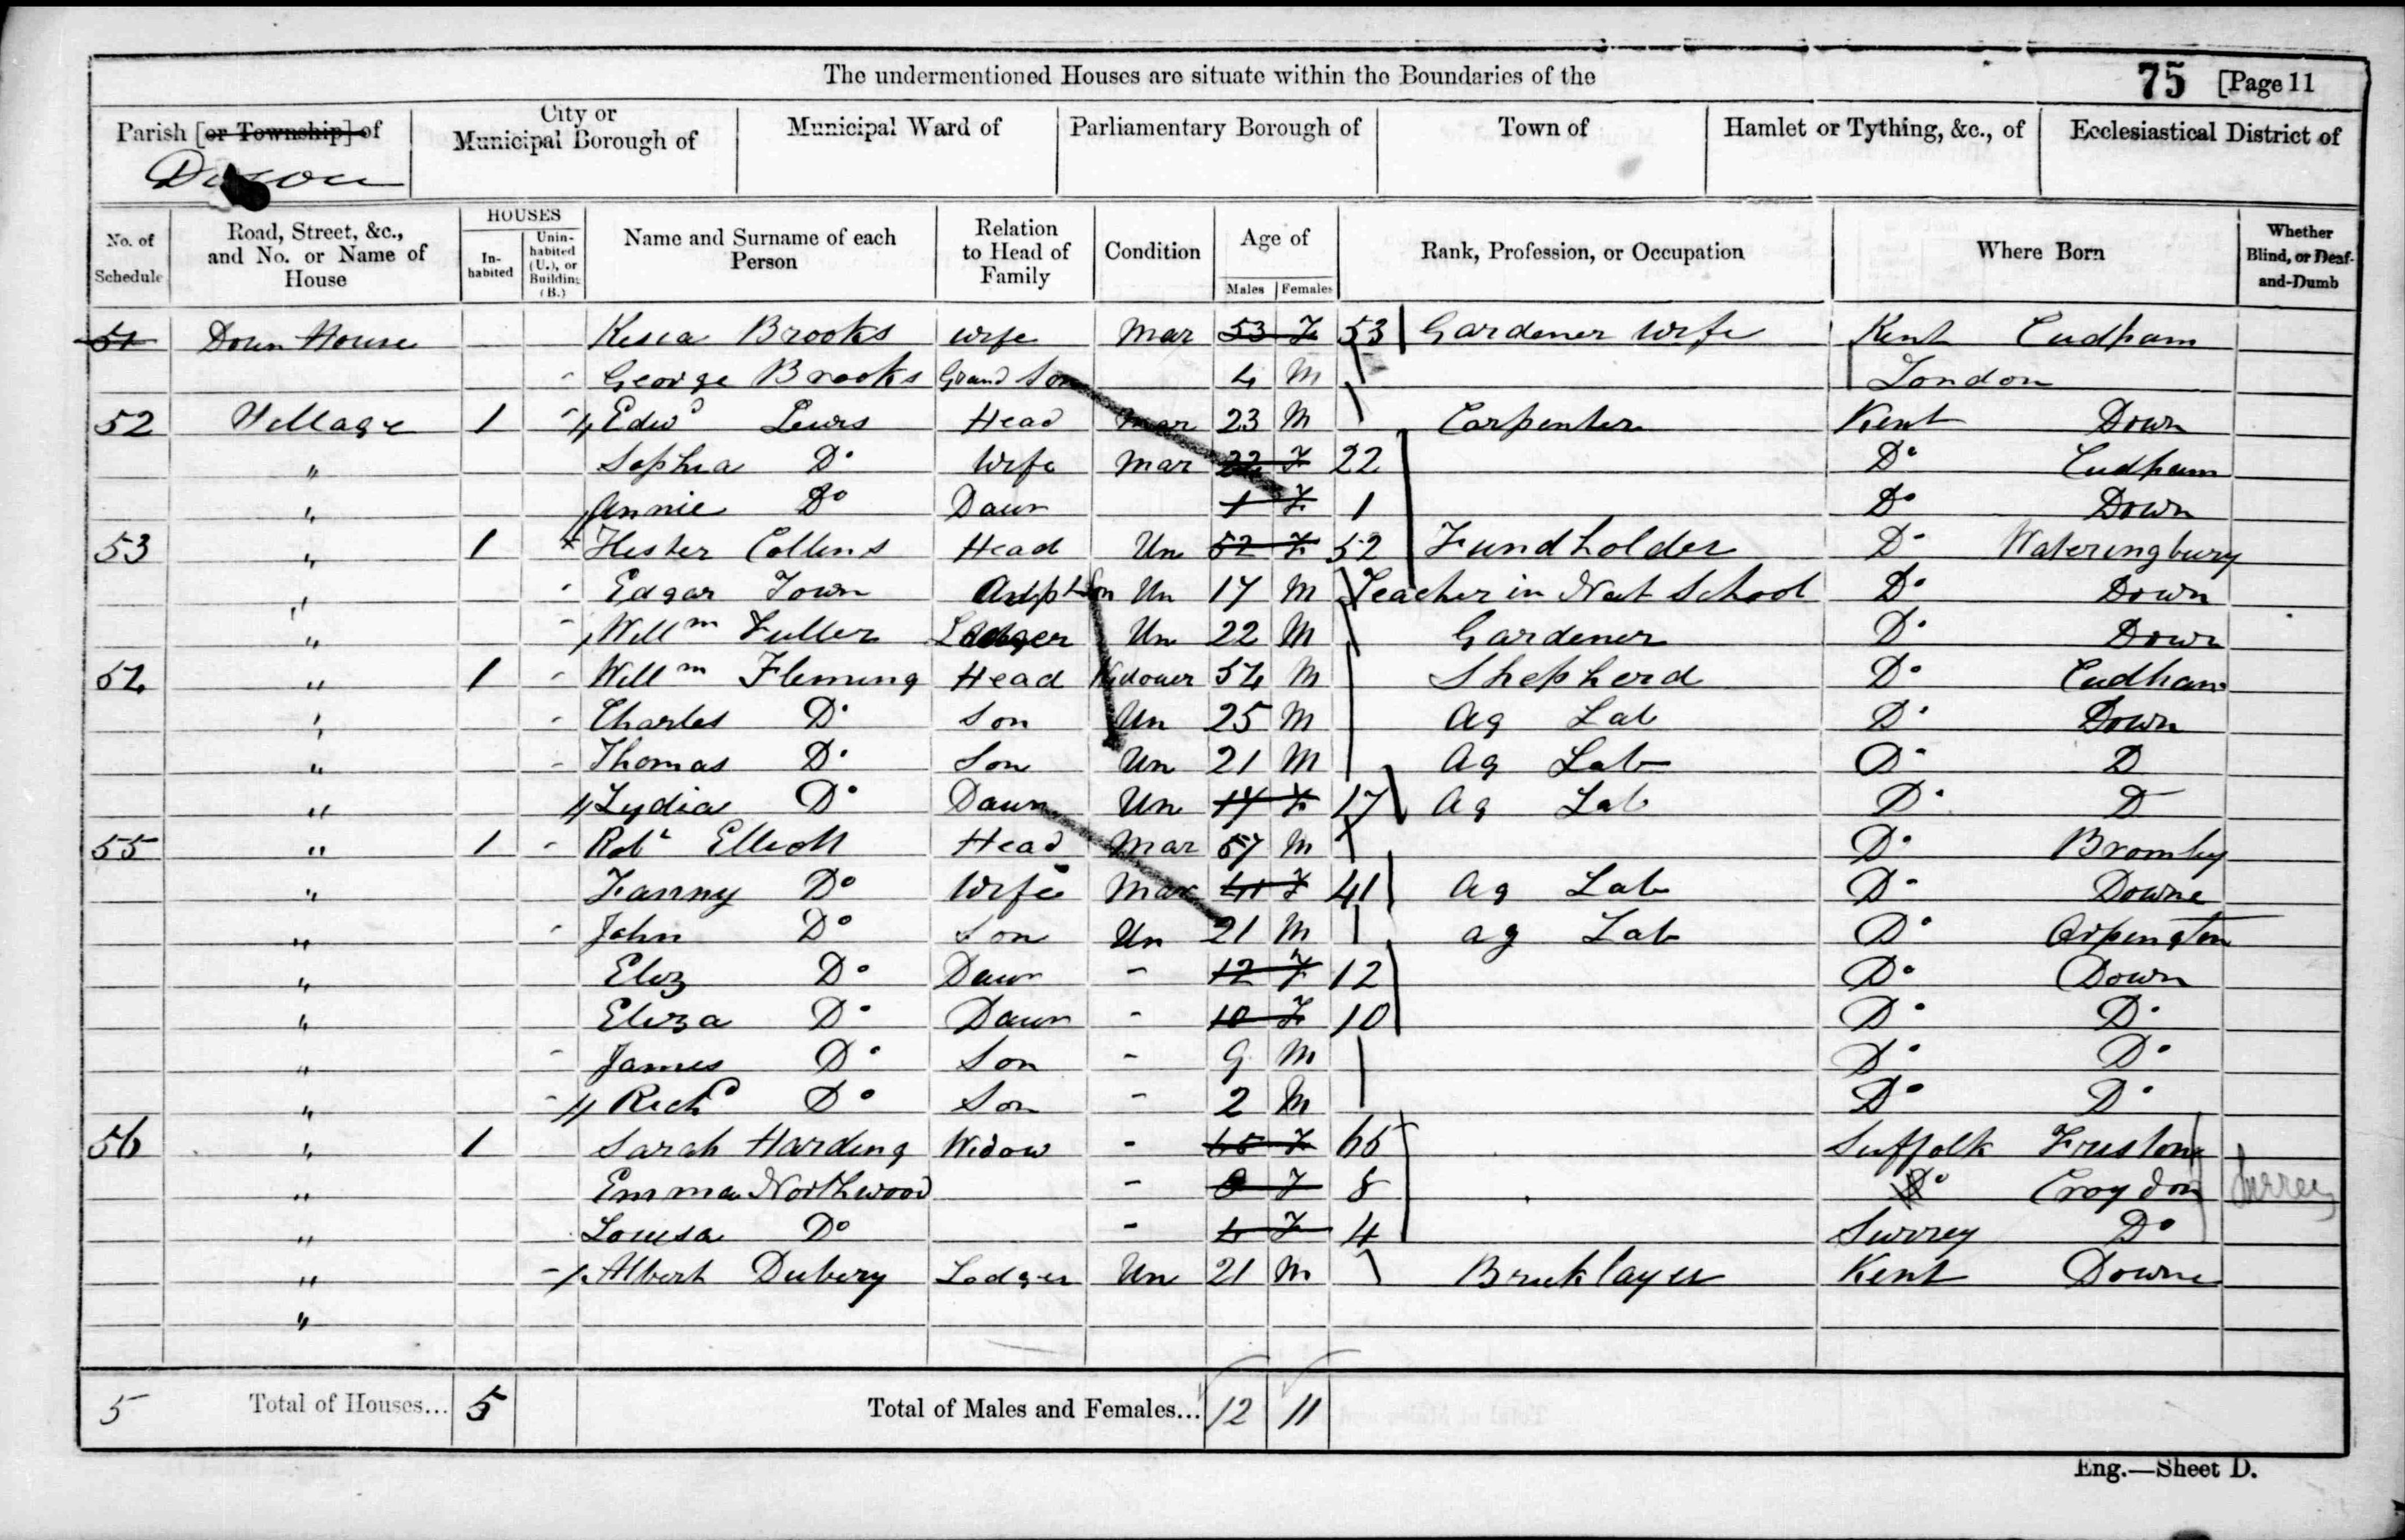 The undermentioned Houses are situate within the Boundaries of the 75 [Page 11
Parish [or Township] of City or Municipal Borough of Municipal Ward of Parliamentary Borough of Town of Hamlet or Tything, &c., of Ecclesiastical District of
Down
No. of Schedule Road, Street, &c., and No. or Name of House HOUSES In-habited Unin-habited (U.), or Building (B.) Name and Surname of each Person Relation to Head of Family Condition Age of Males Females Rank, Profession, or Occupation Where Born Whether Blind, or Deaf-and-Dumb
51 Down House Kesia Brooks Wife Mar 53 F 53 Gardener Wife Kent Cudham
George Brooks Grand Son 4 M London
52 Village 1 Edwd Lewis Head Mar 23 M Carpenter Kent Down
" Sophia Do Wife Mar 22 F 22 Do Cudham
" Annie Do Daur 1 F 1 Do Down
53 " 1 Hester Collins Head Un 52 F 52 Fundholder Do Wateringbury
" Edgar Town Adpt Son Un 17 M Teacher in Nat School Do Down
" Willm Fuller Lodger Un 22 M Gardener Do Down
54 " 1 Willm Fleming Head Widower 54 M Shepherd Do Cudham
" Charles Do Son Un 25 M Ag Lab Do Down
" Thomas Do Son Un 21 M Ag Lab Do D
" Lydia Do Daur Un 17 F 17 Ag Lab Do D
55 " 1 Robt Elliott Head Mar 57 M Do Bromley
" Fanny Do Wife Mar 41 F 41 Ag Lab Do Downe
" John Do Son Un 21 M ag Lab Do Orpington
" Eliz Do Daur - 12 F 12 Do Down
" Eliza Do Daur - 10 F 10 Do Do
" James Do Son - 9 M Do Do
" Richd Do Son - 2 M Do Do
56 " 1 Sarah Harding Widow - 65 F 65 Suffolk Freston
" Emma Northwood - 8 F 8 Do Croydon Surrey
" Louisa Do - 4 F 4 Surrey Do
" Albert Dubery Lodger Un 21 M Bricklayer Kent Downe
"
5 Total of Houses... 5 Total of Males and Females... 12 11
Eng.—Sheet D.